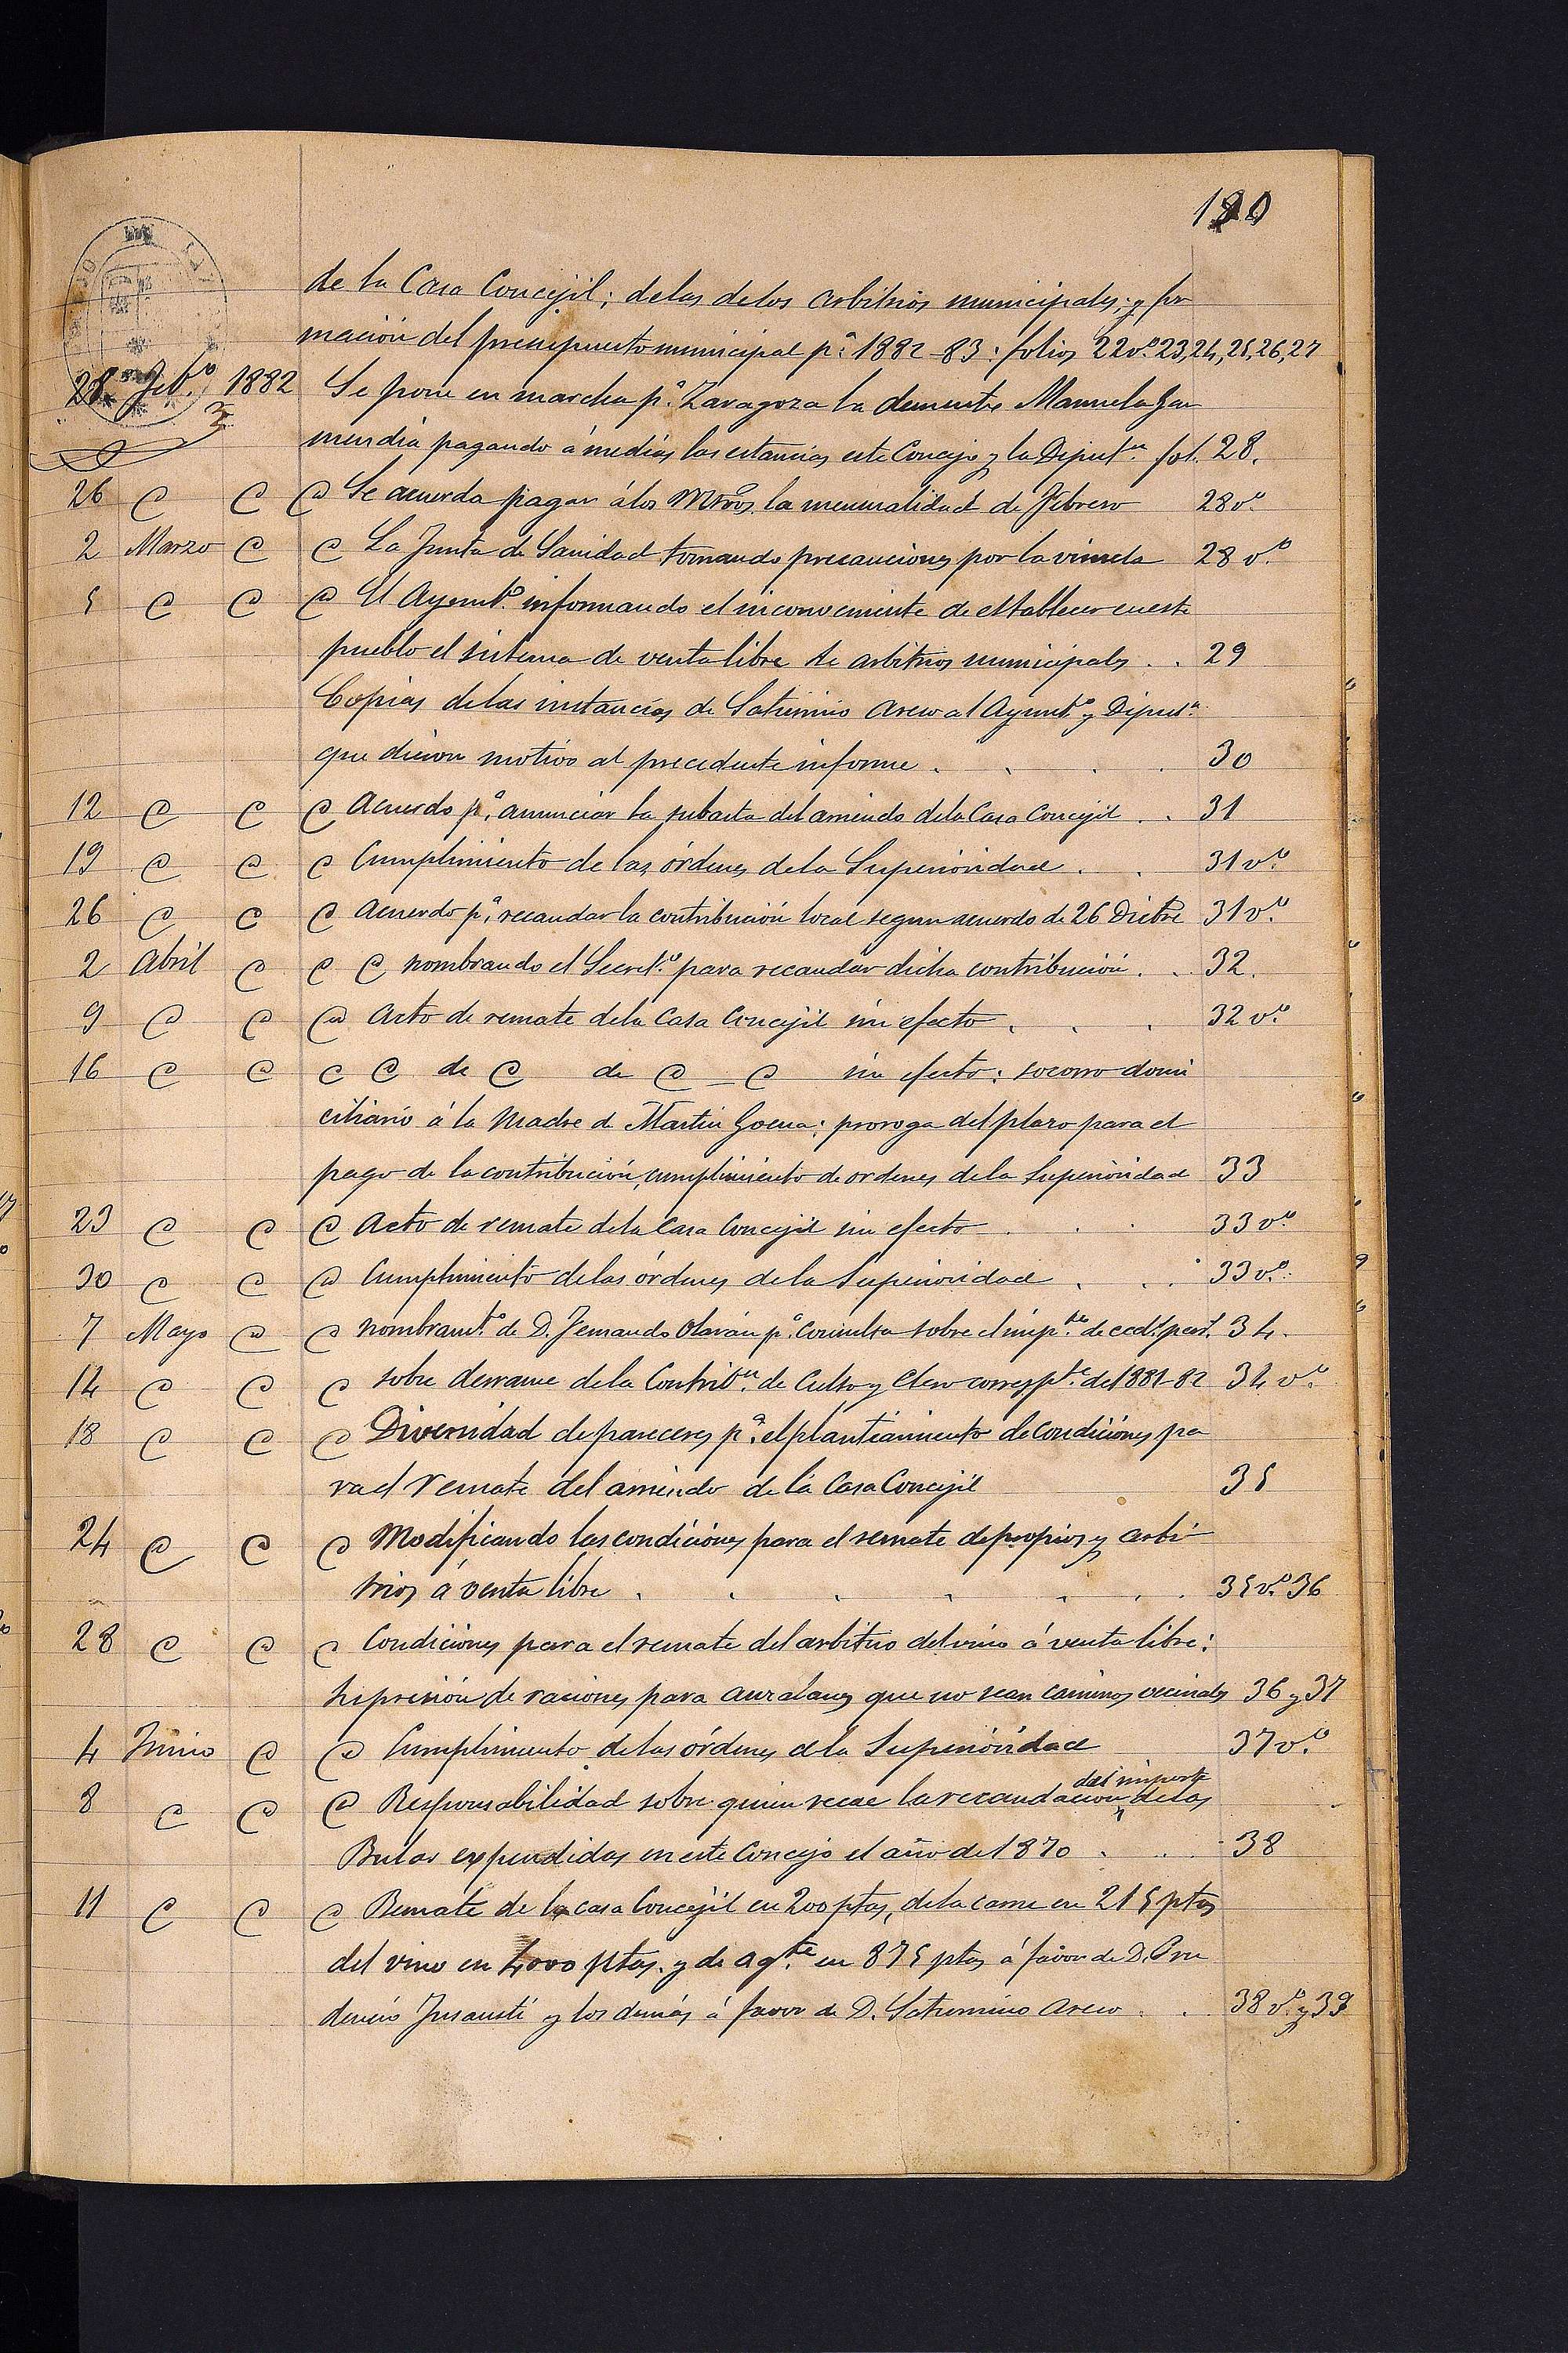 190
de la Casa Concejil; delas delos arbitrios municipales; y for
mación del presupuesto municipal pª. 1882-83: folios 22vº. 23,24,25,26,27
28 Febº. 1882 Se pone en marcha pª. Zaragoza la demente Manuela Gar
mendia pagando á medias las estancias este Concejo y la Diputⁿ. fol. 28.
26 @ @ @ Se acuerda pagar álos Mtros. la mensualidad de Febrero 28vº
2 Marzo @ @ La Junta de Sanidad tomando precauciones por la viruela 28 vº.
5 @ @ @ El Ayuntº. informando el inconveniente de establecer eneste
pueblo el sistema de venta libre de arbitrios municipales . . 29
Copias delas instancias de Saturnino Areso al Ayuntº. y Diputⁿ.
que dieron motivo al precedente informe . . . . 30
12 @ @ @ Acuerdo pª. anunciar la subasta del arriendo dela Casa Concejil . . 31
19 @ @ @ Cumplimiento de las órdenes dela Superioridad . . 31 vº.
26 @ @ @ Acuerdo pª. recaudar la contribución local segun acuerdo de 26 Dicbre 31vº.
2 Abril @ @ @ nombrando el Secretº. para recaudar dicha contribución . . 32.
9 @ @ @ Acto de remate dela Casa Concejil sin efecto . . . 32 vº.
16 @ @ @ @ de @ de @ - @ sin efecto: socorro domi
ciliario á la Madre de Martin Goena: proroga del plazo para el
pago de la contribución, cumplimiento de ordenes dela Superioridad 33
23 @ @ @ Acto de remate dela Casa Concejil sin efecto . . . 33 vº.
30 @ @ @ Cumplimiento delas órdenes dela Superioridad . . . 33vº.
7 Mayo @ @ nombramtº. de D. Fernando Olaván pª. Consulta sobre el impᵗᵉ. de ced.ˢ perˢ. 34.
14 @ @ @ sobre derrame dela Contribⁿ. de Culto y Clero correspᵗᵉ. del 1881-82 34 vº.
18 @ @ @ Diversidad de pareceres pª. el planteamiento de condiciones pa
ra el remate del arriendo de la Casa Concejil 35
24 @ @ @ Modificando las condiciones para el remate depropios y arbi
trios á venta libre . . . . . . . 35vº. 36
28 @ @ @ Condiciones para el remate del arbitrio del vino á venta libre:
supresión de raciones para auzalanes que no sean caminos vecinales 36 y 37
4 Junio @ @ Cumplimiento delas órdenes dela Superioridad 37vº.
8 @ @ @ Responsabilidad sobre quien recae la recaudacion del importe delas
Bulas expendidas en este Concejo el año del 870 . . . 38
11 @ @ @ Remate de la casa Concejil en 200 ptas, dela carne en 215 ptas
del vino en 4000 ptas. y de agᵗᵉ. en 875 ptas á favor de D. Pru
dencio Jusausti y los demás á favor de D. Saturnino Areso . . 38 vº. y 39